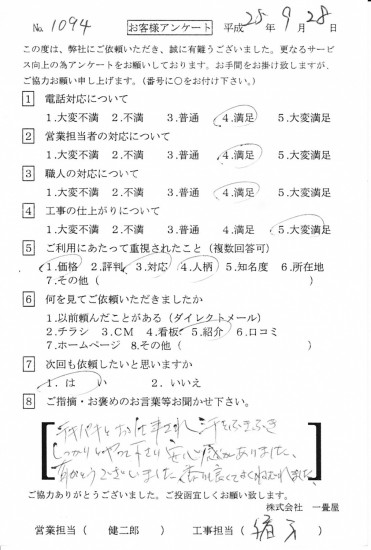 No. 1094 お客様アンケート 平成 25 年 9 月 28 日
この度は、弊社にご依頼いただき、誠に有難うございました。更なるサービ
ス向上の為アンケートをお願いしております。お手間をお掛け致しますが、
ご協力お願い申し上げます。(番号に○をお付け下さい。)
1 電話対応について
1.大変不満 2.不満 3.普通 4.満足 5.大変満足
2 営業担当者の対応について
1.大変不満 2.不満 3.普通 4.満足 5.大変満足
3 職人の対応について
1.大変不満 2.不満 3.普通 4.満足 5.大変満足
4 工事の仕上がりについて
1.大変不満 2.不満 3.普通 4.満足 5.大変満足
5 ご利用にあたって重視されたこと(複数回答可)
1.価格 2.評判 3.対応 4.人柄 5.知名度 6.所在地
7.その他( )
6 何を見てご依頼いただきましたか
1.以前頼んだことがある(ダイレクトメール)
2.チラシ 3.CM 4.看板 5.紹介 6.口コミ
7.ホームページ 8.その他( )
7 次回も依頼したいと思いますか
1.はい 2.いいえ
8 ご指摘・お褒めのお言葉等お聞かせ下さい。
テキパキとお仕事され 汗をふきふき
しっかりとやって下さり 安心感がありました、
ありがとうございました、香りも良くてよくねむれました、
ご協力ありがとうございました。ご投函宜しくお願い致します。
株式会社 一畳屋
営業担当( 健二郎 ) 工事担当( )